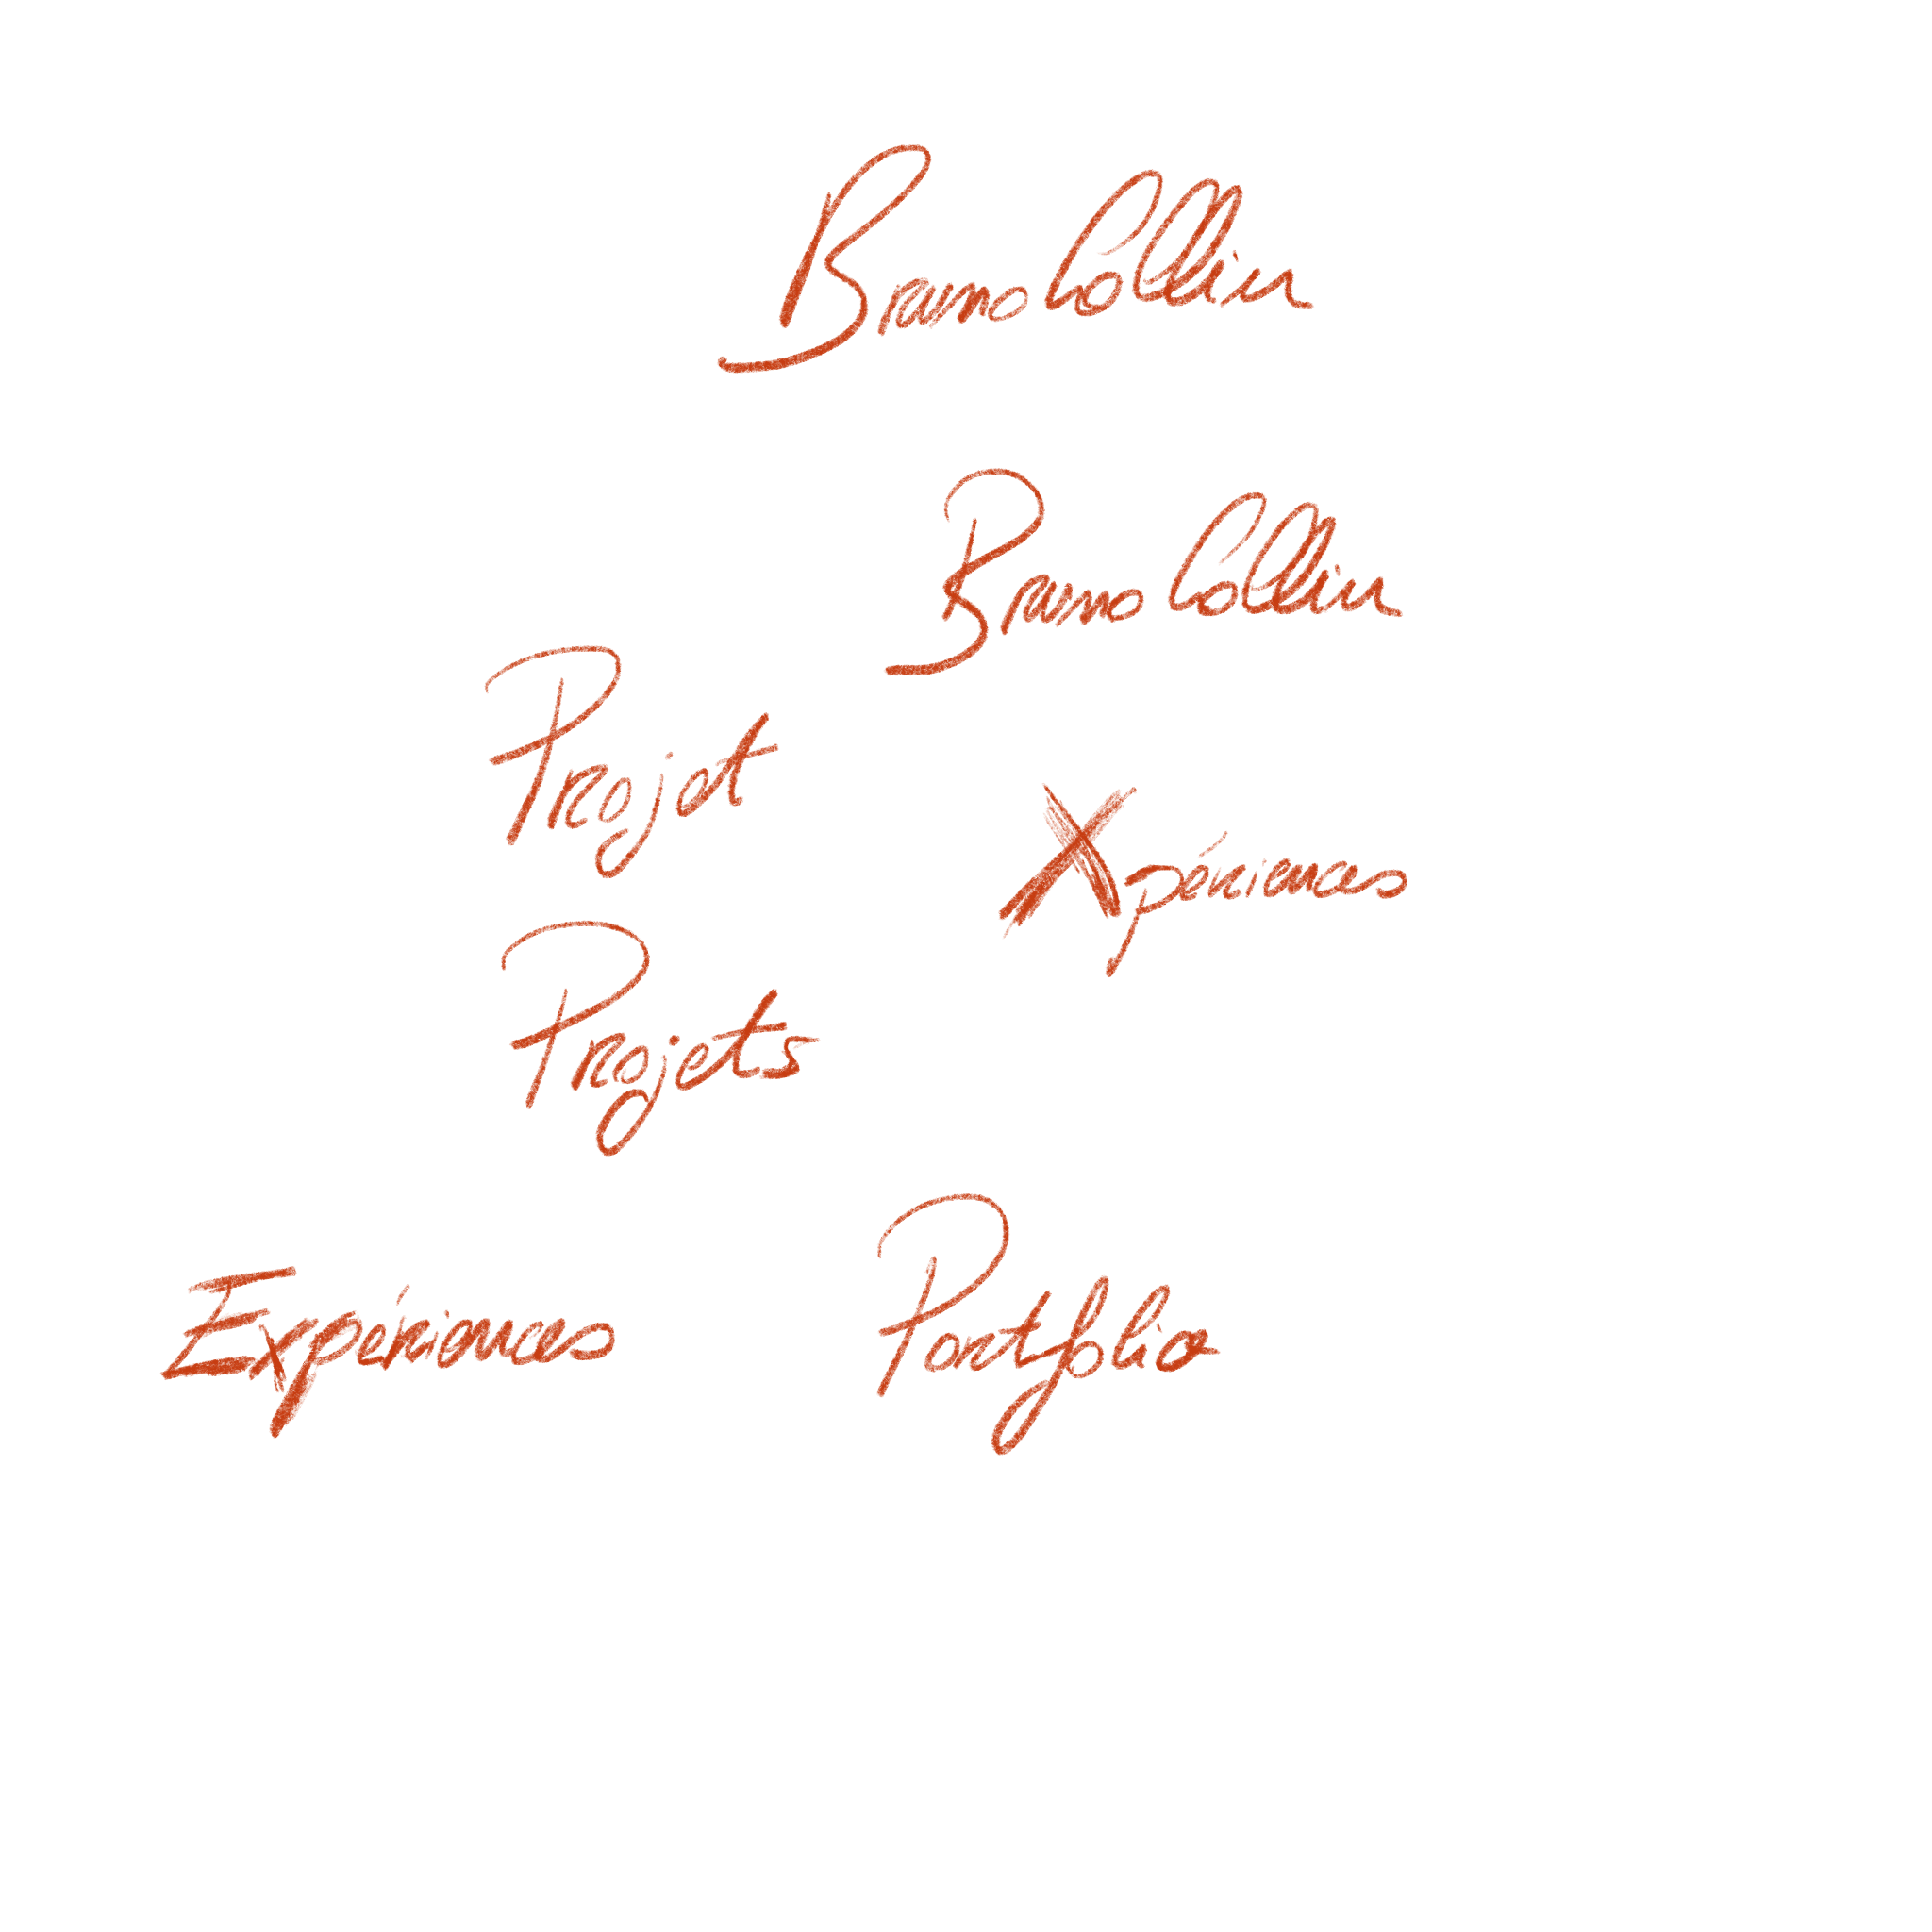 Bruno Collin
Bruno Collin
Projet
Xpériences
Projets
Expériences
Portfolio